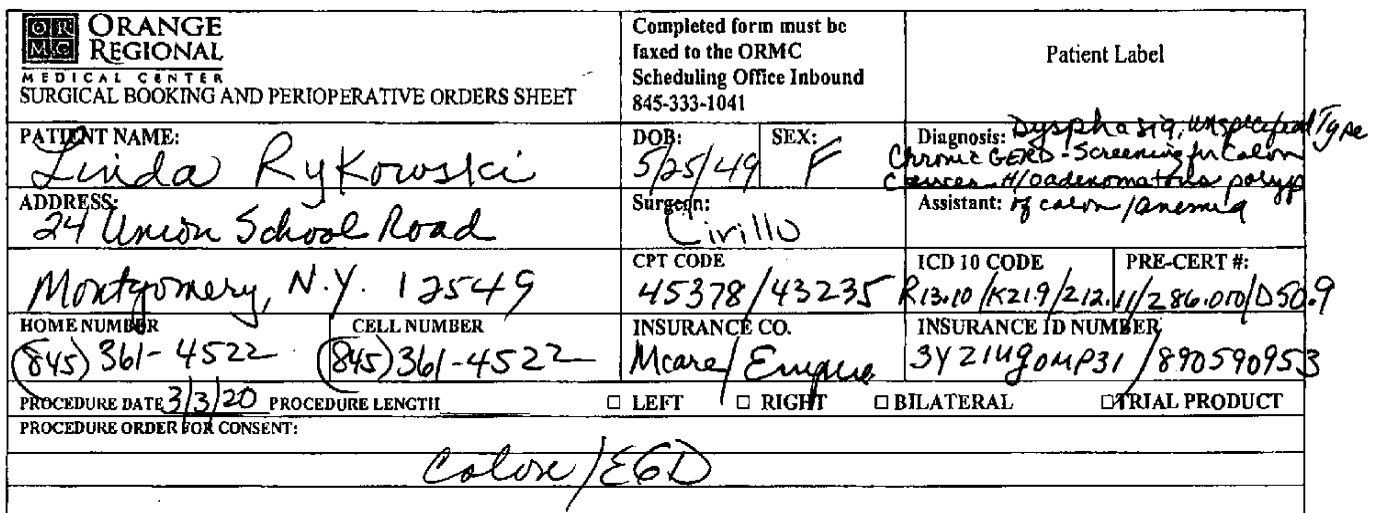 OR MC ORANGE REGIONAL
MEDICAL CENTER
SURGICAL BOOKING AND PERIOPERATIVE ORDERS SHEET
Completed form must be
faxed to the ORMC
Scheduling Office Inbound
845-333-1041
Patient Label
PATIENT NAME:
Linda Rykowski
DOB:
5/25/49
SEX:
F
Diagnosis: Dysphasia, unspecified Type
Chronic GERD - Screening for Colon
Cancer H/O adenomatous polyp
of colon / anemia
ADDRESS:
24 Union School Road
Surgeon:
Cirillo
Assistant:
Montgomery, N.Y. 12549
CPT CODE
45378/43235
ICD 10 CODE
PRE-CERT #:
R13.10/K21.9/Z12.11/Z86.010/D50.9
HOME NUMBER
(845) 361-4522
CELL NUMBER
(845) 361-4522
INSURANCE CO.
Mcare/Empire
INSURANCE ID NUMBER
3Y21Mg0MP31/890590953
PROCEDURE DATE 3/3/20 PROCEDURE LENGTH
□ LEFT □ RIGHT □ BILATERAL □ TRIAL PRODUCT
PROCEDURE ORDER FOR CONSENT:
Colon/EGD